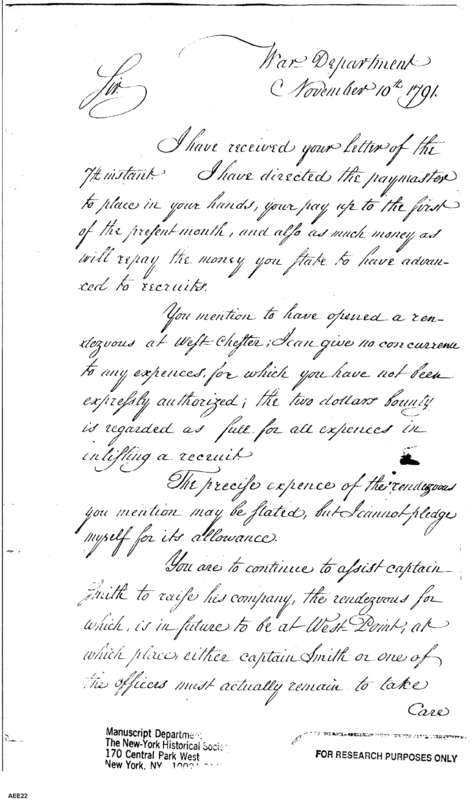 War Department
November 10th 1791.
Sir
I have received your letter of the
7th instant I have directed the paymaster
to place in your hands, your pay up to the first
of the present month, and also as much money as
will repay the money you state to have advan-
ced to recruits.
You mention to have opened a ren-
dezvous at West-Chester; I can give no concurrence
to any expences, for which you have not been
expressly authorized; the two dollars bounty
is regarded as full for all expences in
inlisting a recruit
The precise expence of the rendezvous
you mention may be stated, but I cannot pledge
myself for its allowance.
You are to continue to assist captain
Smith to raise his company, the rendezvous for
which, is in future to be at West-Point; at
which place either captain Smith or one of
the officers must actually remain to take
Care
Manuscript Department
The New-York Historical Society
170 Central Park West
New York, NY
FOR RESEARCH PURPOSES ONLY
AEE22